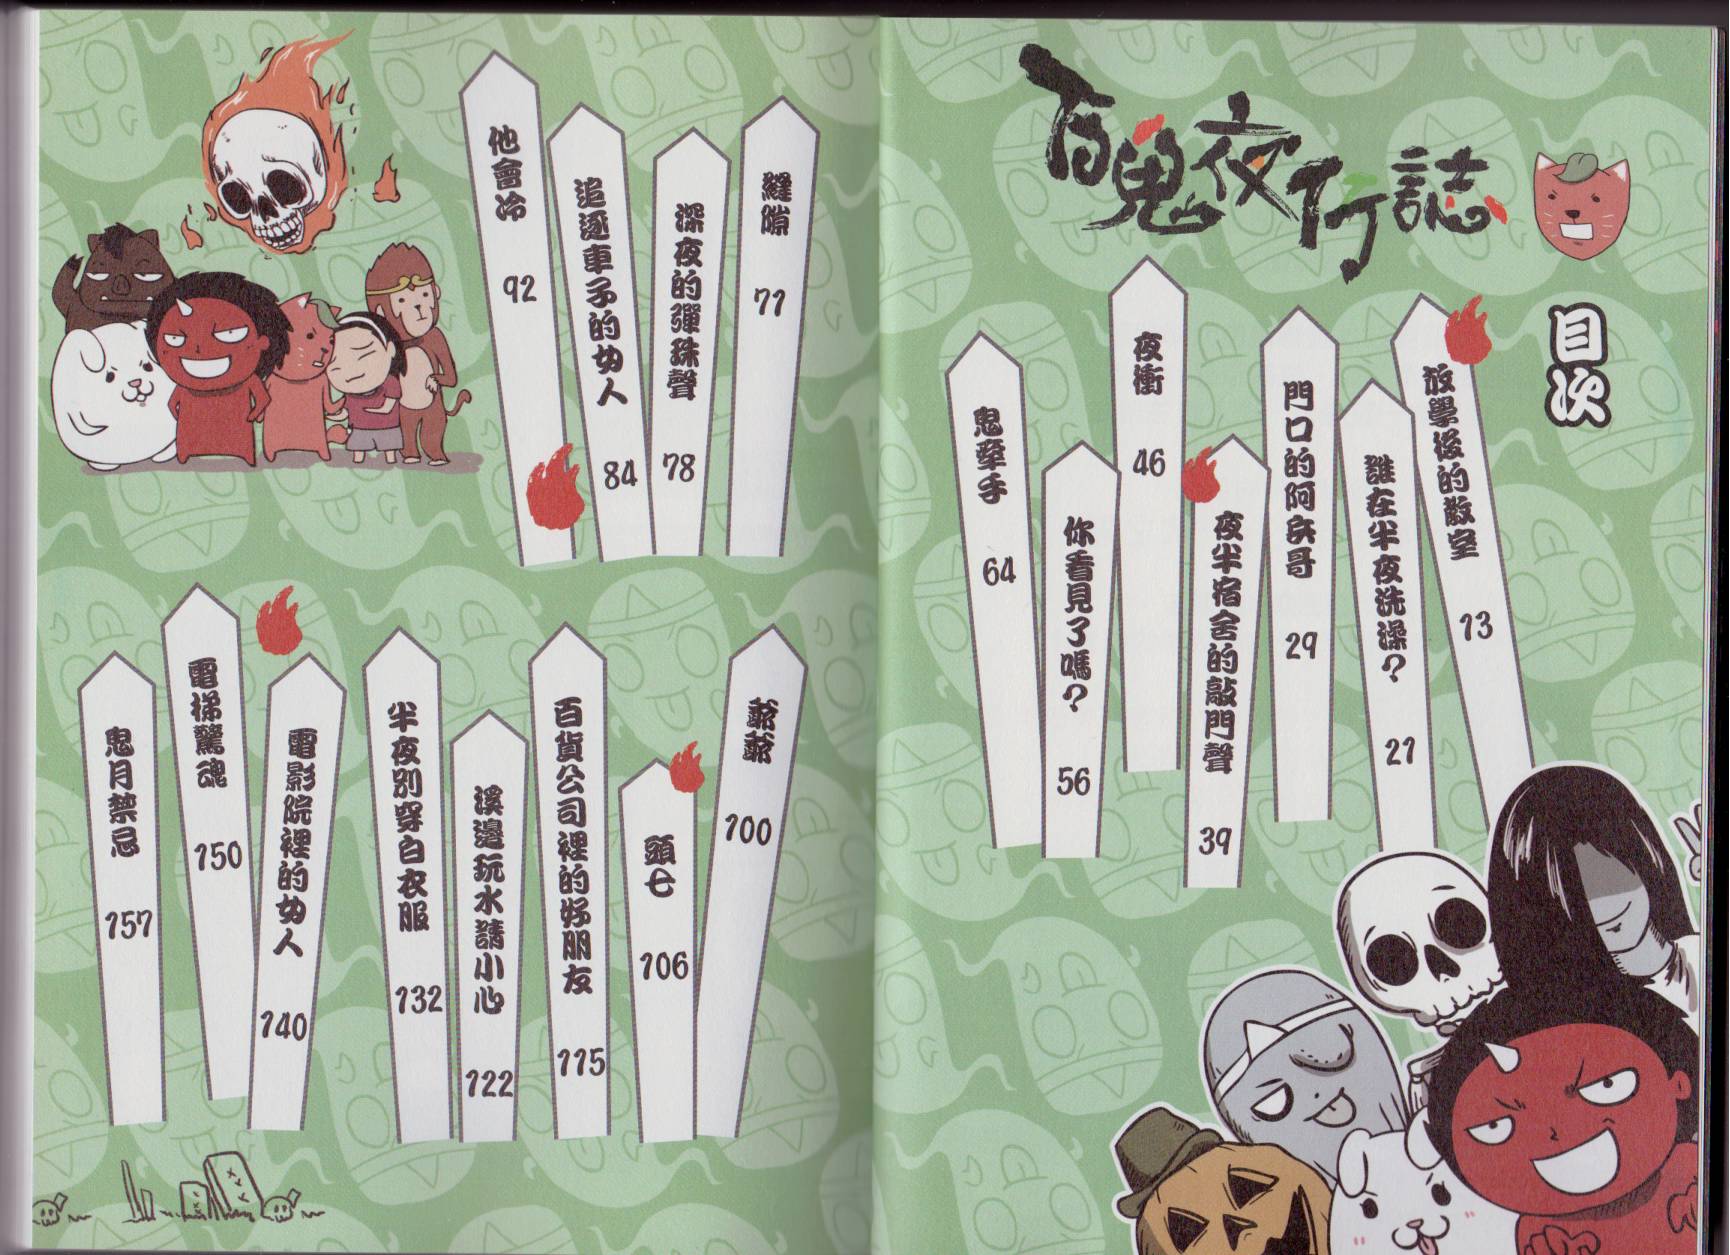 百鬼夜行誌
目次
放學後的教室 13
誰在半夜洗澡？ 21
門口的阿兵哥 29
夜半宿舍的敲門聲 39
夜衝 46
你看見了嗎？ 56
鬼牽手 64
縫隙 71
深夜的彈珠聲 78
追逐車子的女人 84
他會冷 92
爺爺 100
頭七 106
百貨公司裡的好朋友 115
溪邊玩水請小心 122
半夜別穿白衣服 132
電影院裡的女人 140
電梯驚魂 150
鬼月禁忌 157